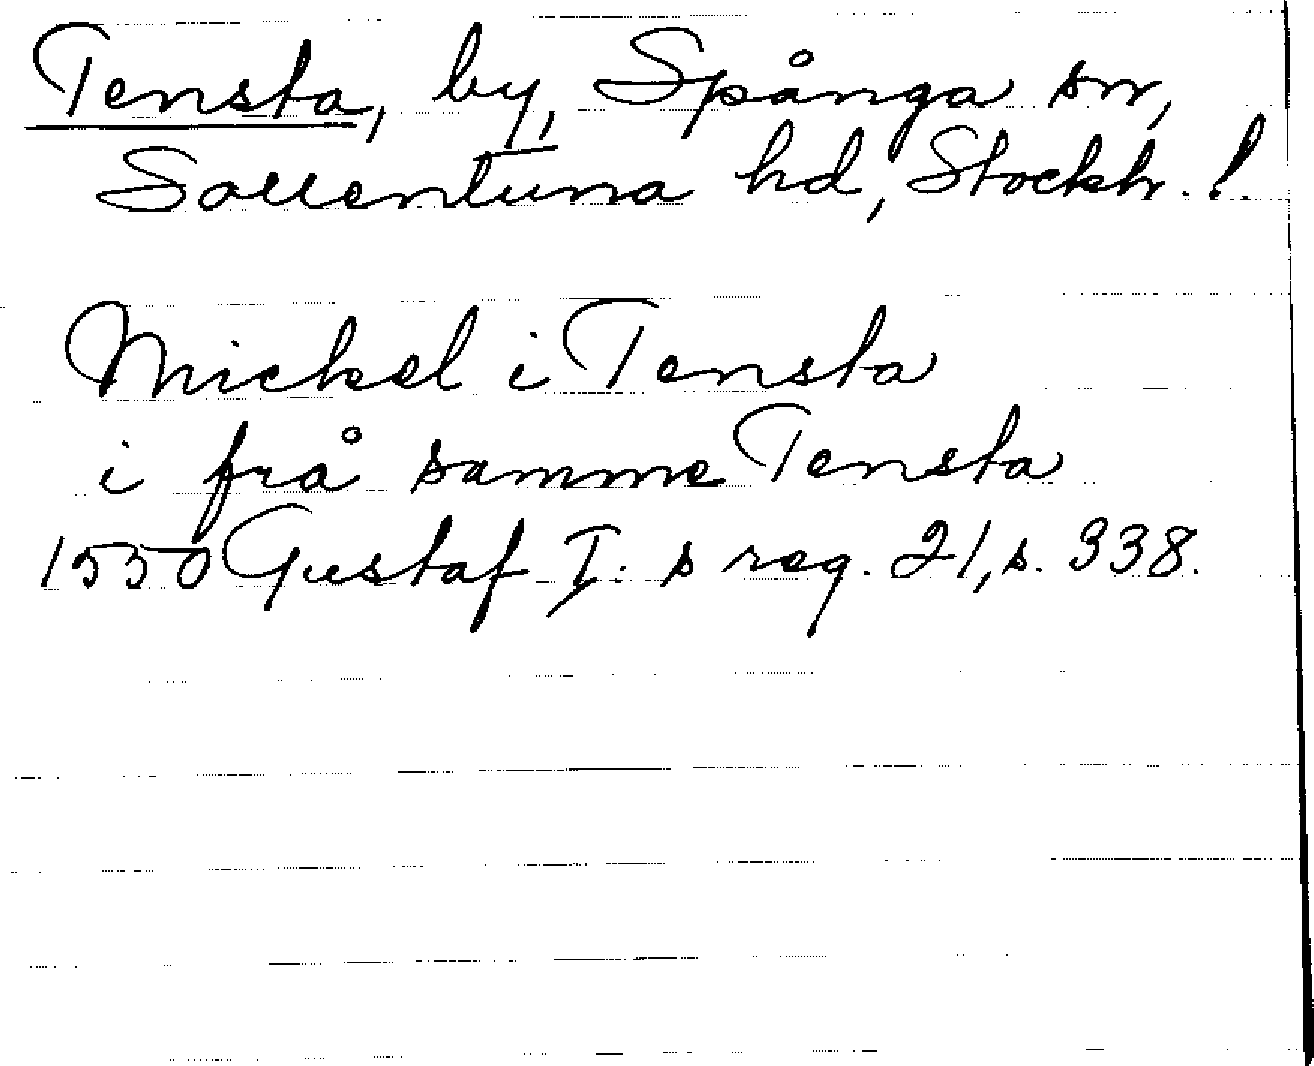 Tensta, by, Spånga sn,
Sollentuna hd, Stockh. l.
Mickel i Tensta
i frå samme Tensta
1550 Gustaf I: s reg. 21, s. 338.